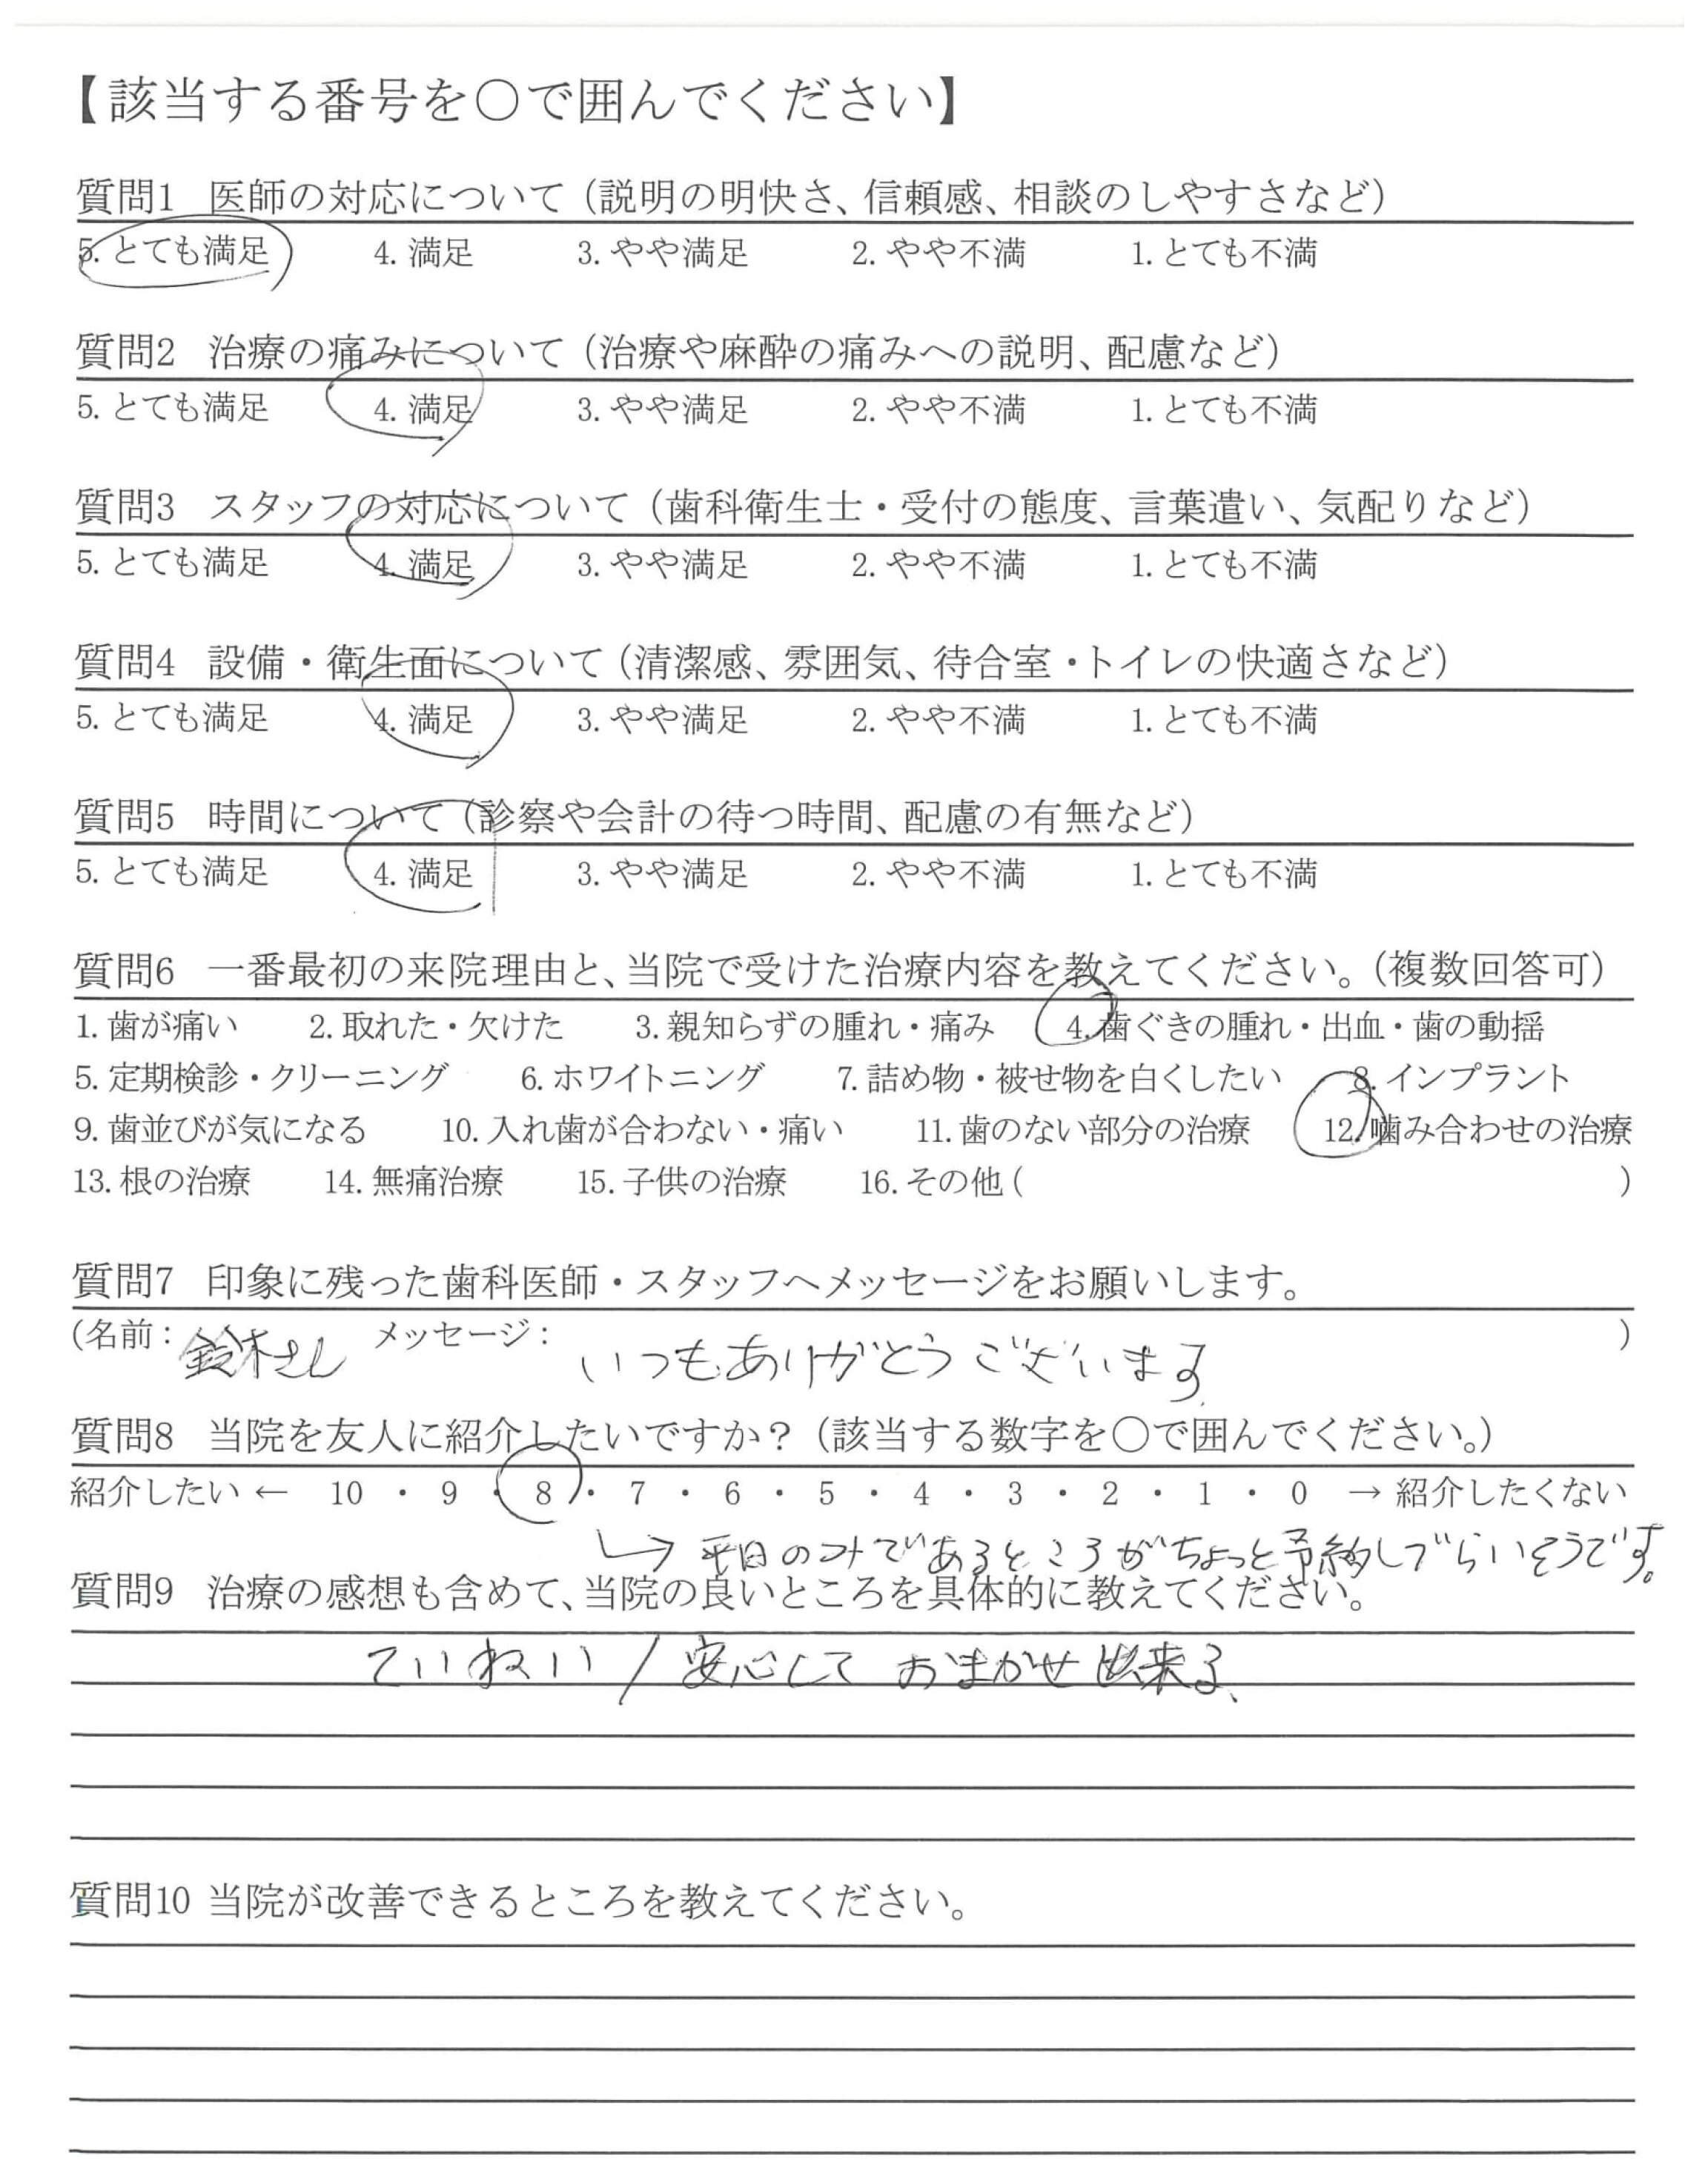 【該当する番号を〇で囲んでください】
質問1 医師の対応について（説明の明快さ、信頼感、相談のしやすさなど）
5. とても満足 4. 満足 3. やや満足 2. やや不満 1. とても不満
質問2 治療の痛みについて（治療や麻酔の痛みへの説明、配慮など）
5. とても満足 4. 満足 3. やや満足 2. やや不満 1. とても不満
質問3 スタッフの対応について（歯科衛生士・受付の態度、言葉遣い、気配りなど）
5. とても満足 4. 満足 3. やや満足 2. やや不満 1. とても不満
質問4 設備・衛生面について（清潔感、雰囲気、待合室・トイレの快適さなど）
5. とても満足 4. 満足 3. やや満足 2. やや不満 1. とても不満
質問5 時間について（診察や会計の待つ時間、配慮の有無など）
5. とても満足 4. 満足 3. やや満足 2. やや不満 1. とても不満
質問6 一番最初の来院理由と、当院で受けた治療内容を教えてください。（複数回答可）
1. 歯が痛い 2. 取れた・欠けた 3. 親知らずの腫れ・痛み 4. 歯ぐきの腫れ・出血・歯の動揺
5. 定期検診・クリーニング 6. ホワイトニング 7. 詰め物・被せ物を白くしたい 8. インプラント
9. 歯並びが気になる 10. 入れ歯が合わない・痛い 11. 歯のない部分の治療 12. 噛み合わせの治療
13. 根の治療 14. 無痛治療 15. 子供の治療 16. その他（ ）
質問7 印象に残った歯科医師・スタッフへメッセージをお願いします。
（名前：鈴木さん メッセージ：いつもありがとうございます ）
質問8 当院を友人に紹介したいですか？（該当する数字を〇で囲んでください。）
紹介したい ← 10 ・ 9 ・ 8 ・ 7 ・ 6 ・ 5 ・ 4 ・ 3 ・ 2 ・ 1 ・ 0 → 紹介したくない
↳ 平日のみであるところがちょっと予約しづらいそうです。
質問9 治療の感想も含めて、当院の良いところを具体的に教えてください。
ていねい / 安心して おまかせ出来る、
質問10 当院が改善できるところを教えてください。